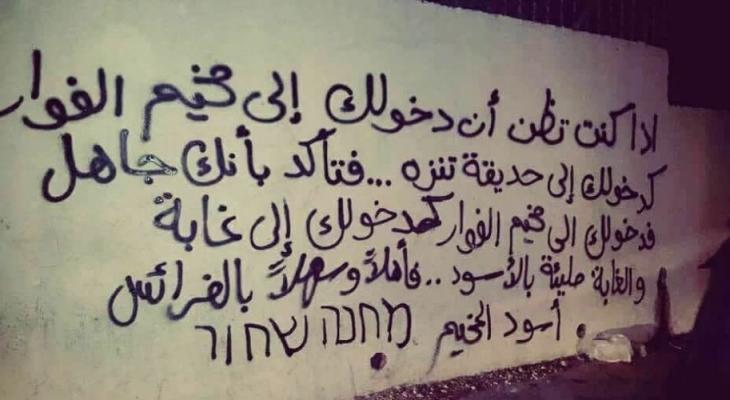 اذا كنت تظن أن دخولك إلى مخيم الفوار
كدخولك إلى حديقة تنزه ... فتأكد بأنك جاهل
فدخولك الى مخيم الفوار كدخولك إلى غابة
والغابة مليئة بالأسود .. فأهلاً وسهلاً بالفرائس
. أسود المخيم מחנה שחור